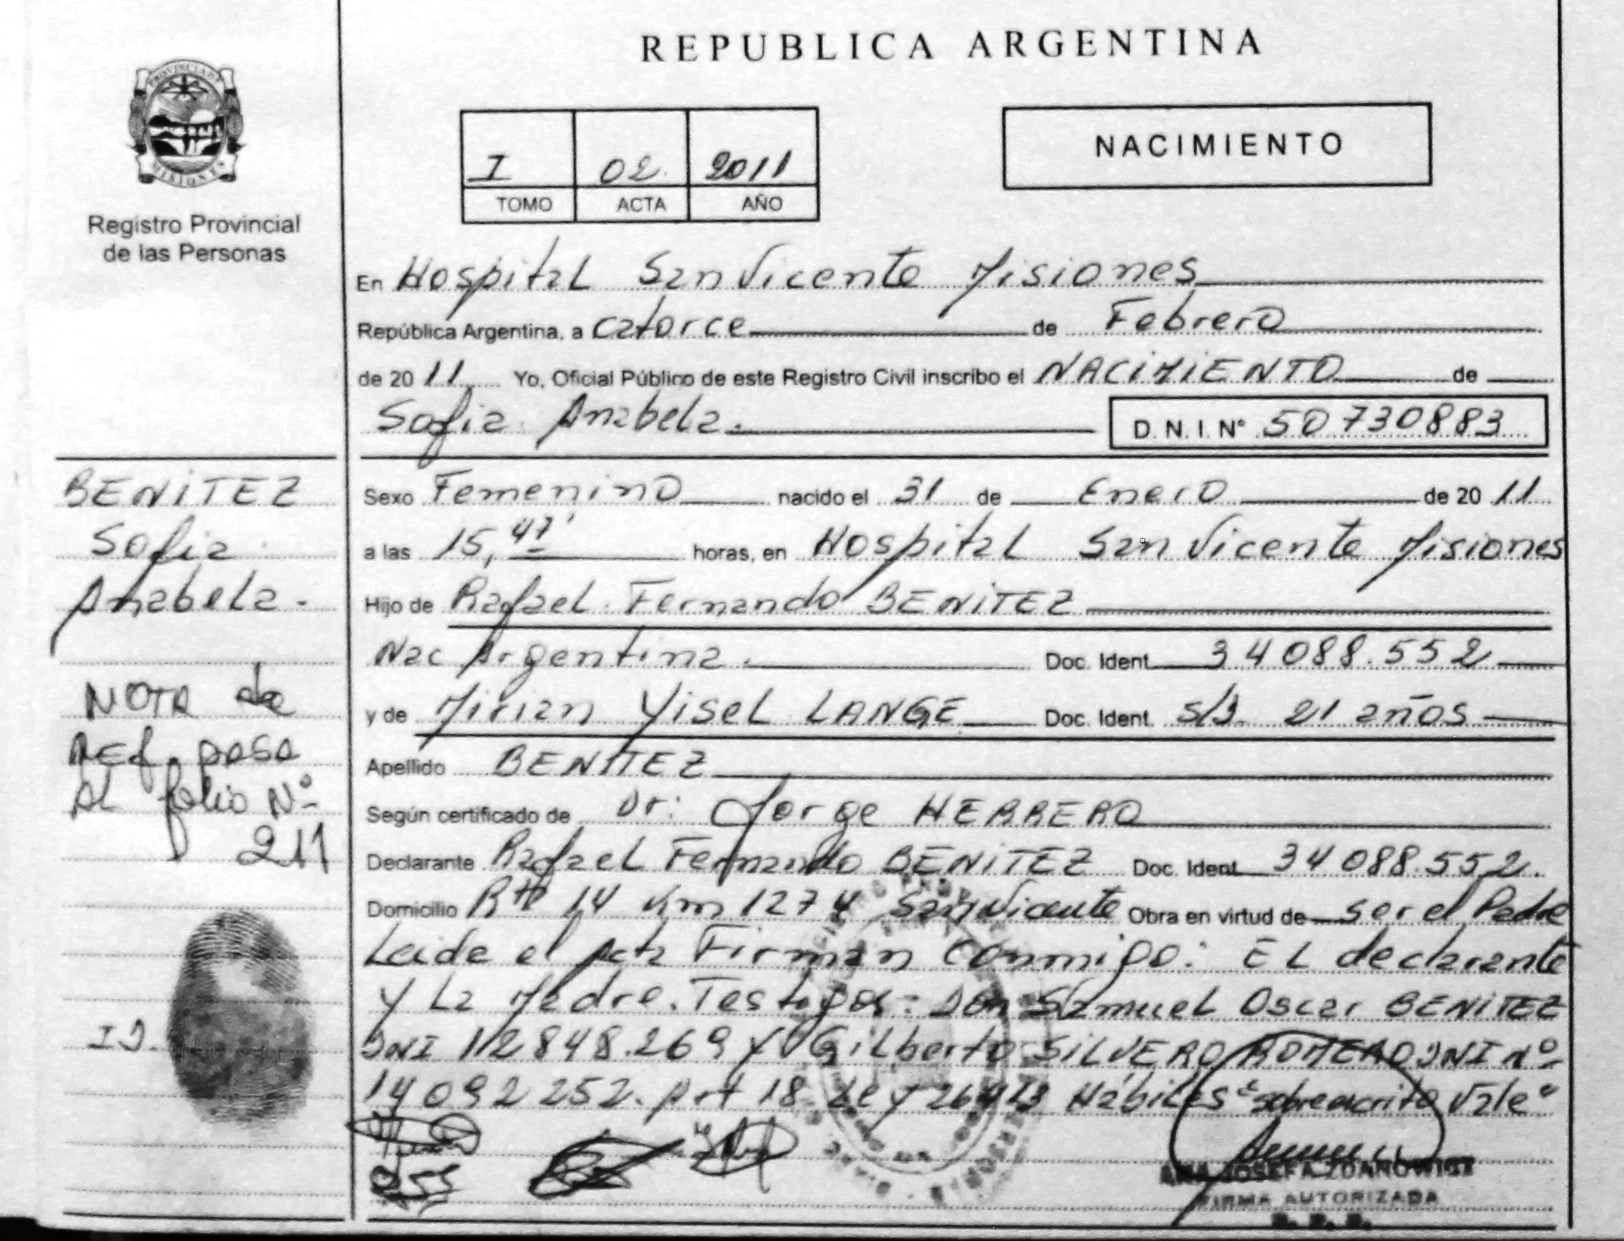 REPUBLICA ARGENTINA
PROVINCIA DE
MISIONES
Registro Provincial
de las Personas
I 02 2011
TOMO ACTA AÑO
NACIMIENTO
En Hospital San Vicente Misiones
República Argentina, a catorce de Febrero
de 2011 Yo, Oficial Público de este Registro Civil inscribo el NACIMIENTO de
Sofia Anabela. D. N. I. Nº 50730883
BENITEZ
Sofia
Anabela.
NOTA de
REF. pasa
AL folio Nº
211
I D.
Sexo Femenino nacido el 31 de Enero de 2011
a las 15,47' horas, en Hospital San Vicente Misiones
Hijo de Rafael Fernando BENITEZ
Nac Argentina. Doc. Ident. 34088.552
y de Mirian Yisel LANGE Doc. Ident. S/D. 21 años
Apellido BENITEZ
Según certificado de Dr: Jorge HERRERO
Declarante Rafael Fernando BENITEZ Doc. Ident. 34088.552.
Domicilio Rta 14 Km 1274 San Vicente Obra en virtud de ser el Padre
Leida el Acta Firman Conmigo: EL declarante
y La Madre. Testigos: Don Samuel Oscar BENITEZ
DNI 12848.269 y Gilberto SILVERO ROMERO DNI nº
14092252. Art 18 Ley 26413 Hábiles "sobreescrito Vale"
ANA JOSEFA ZDANOWICZ
FIRMA AUTORIZADA
R. P. P.